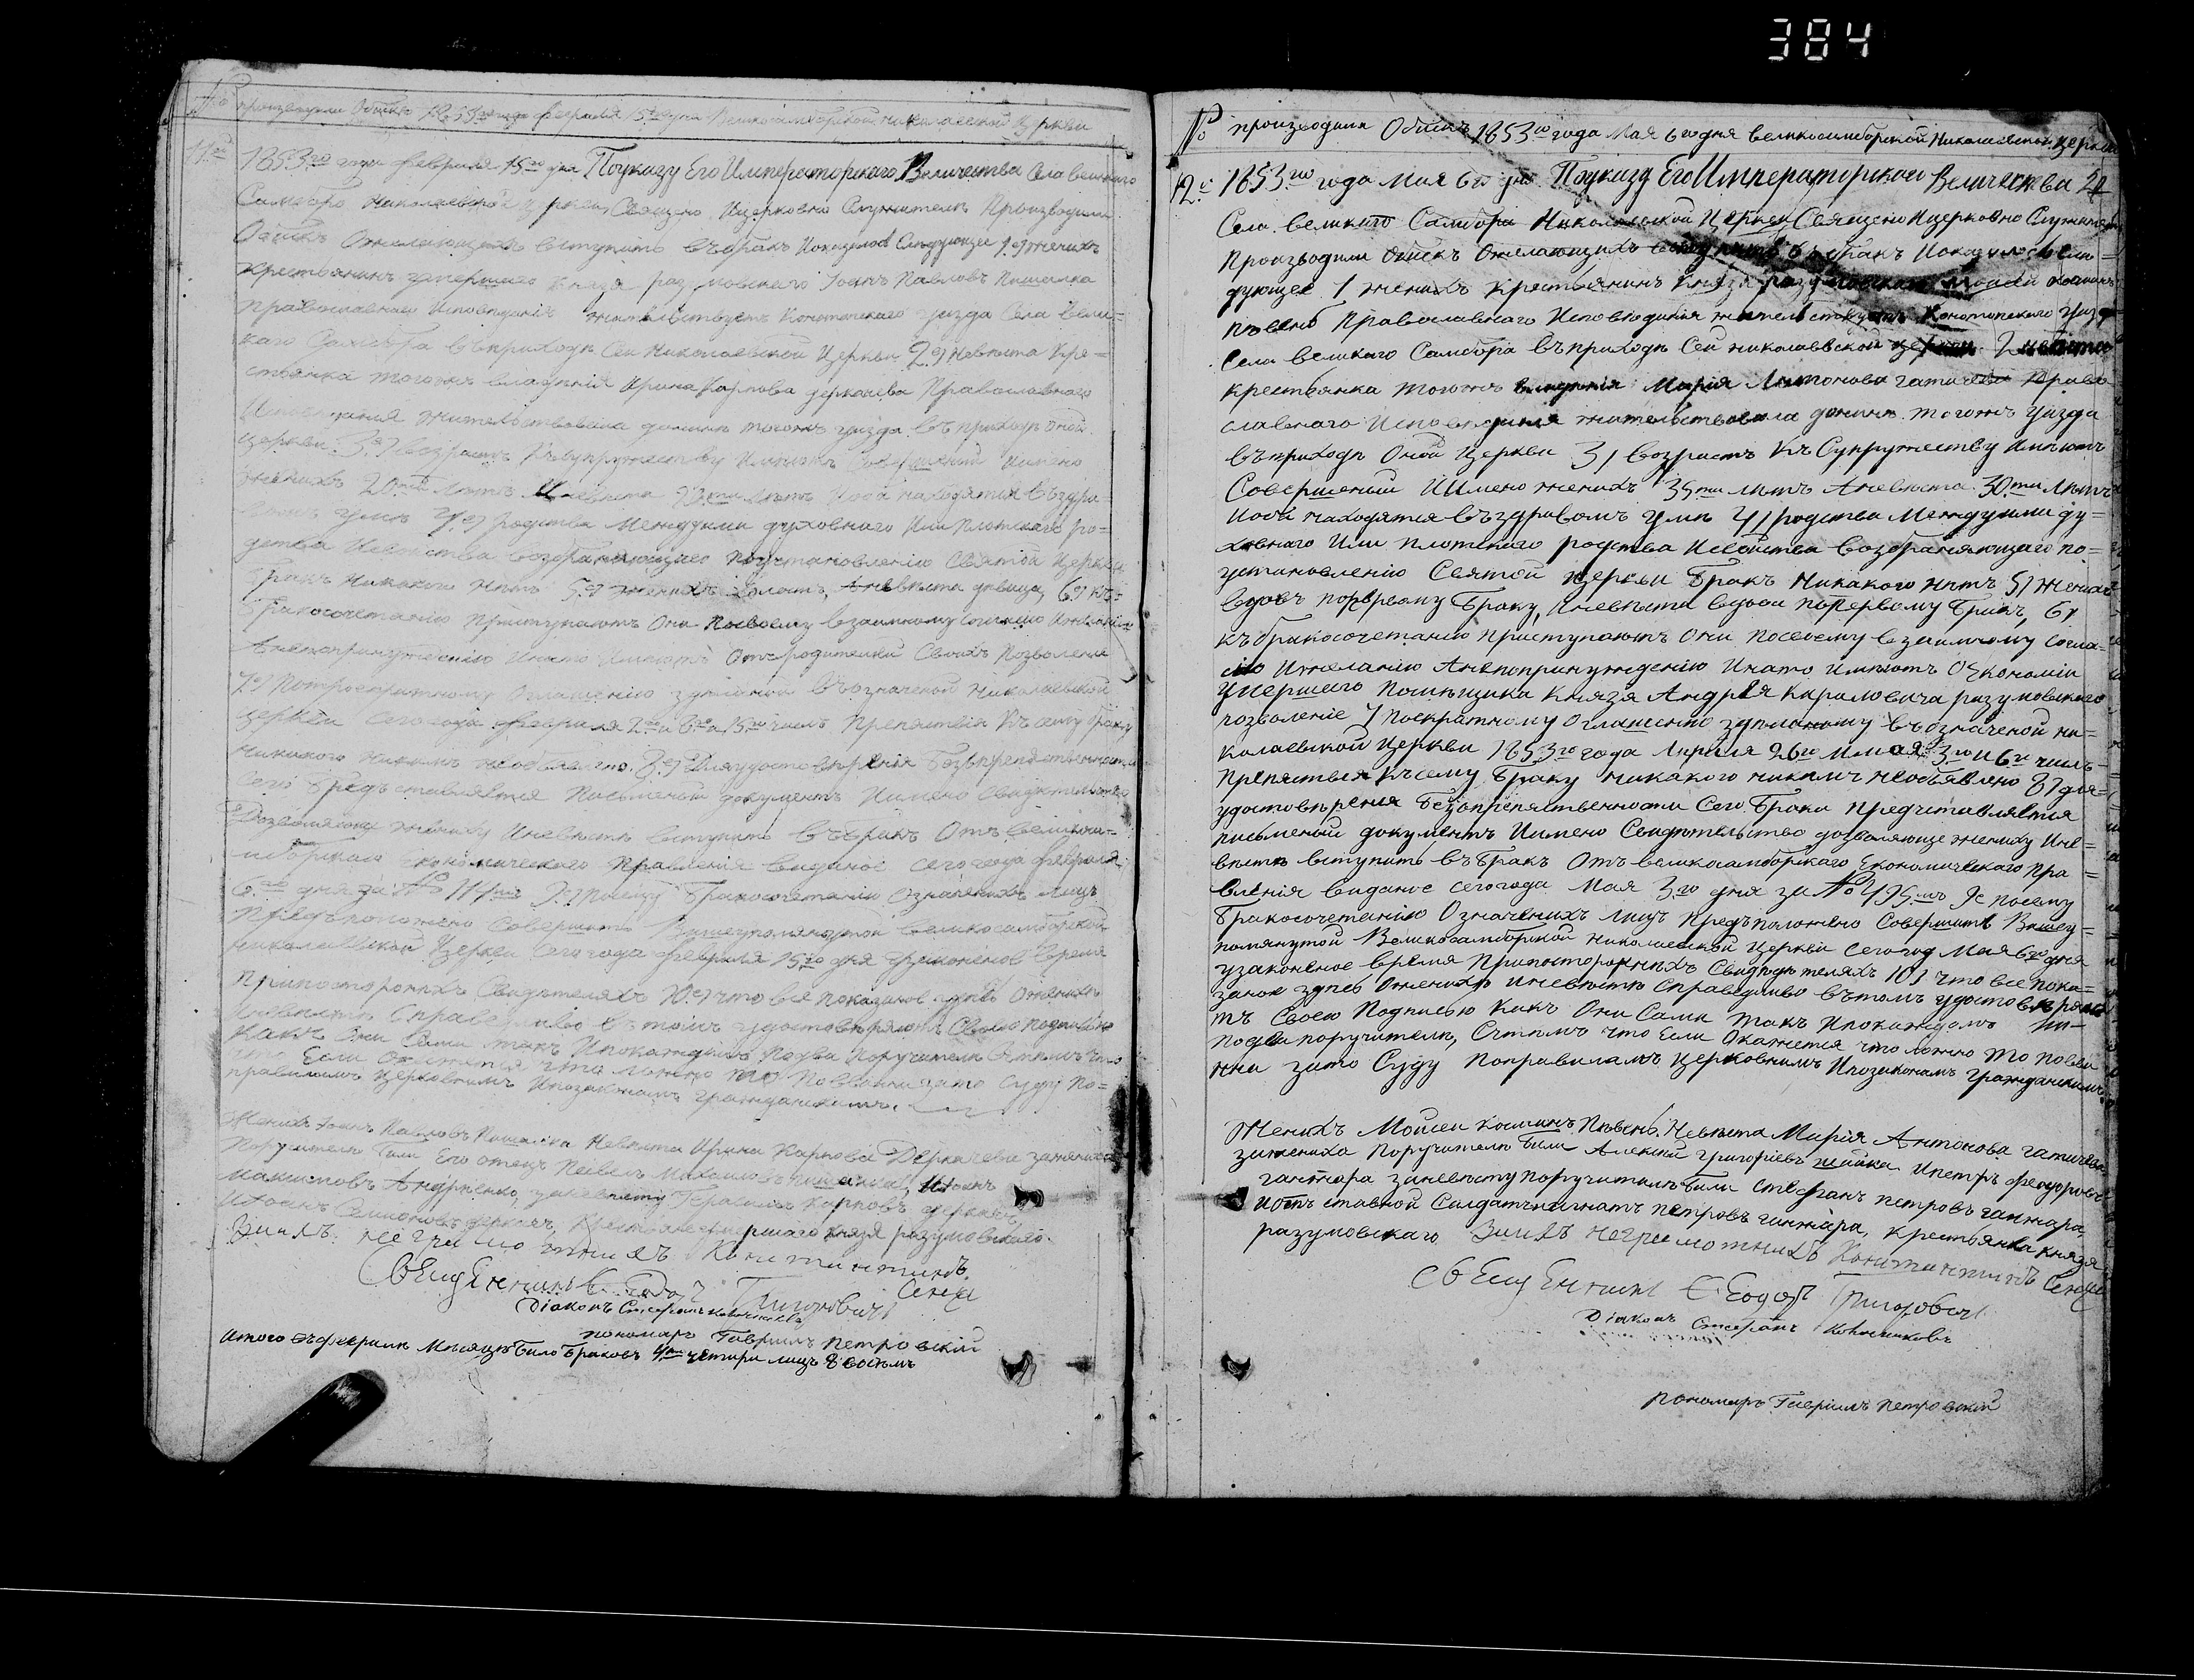 384
№ производили Обыскъ 1853го года февраля 15го дня Великосамборской николаевской Церкви
11й 1853го года февраля 15го дня Поуказу Его Императорскаго Величества Села великаго
Самбора Николаевской церкви Священо Ицерковно Служители Производили
Обыскъ Ожелающихъ вступить въбракъ Иоказалось Следующее 1е) женихъ
крестьянинъ умершаго князя разумовскаго Іоанъ Павловъ Пишалка
православнаго Исповеданія жительствуетъ Конотопскаго уезда Села вели=
каго Самбора въприходе Сей Николаевской Церкви 2е) Невеста Кре=
стьянка тогожъ владенія Ирина Карпова деркачева Православнаго
Исповеданія жительствовала доныне тогожъ уезда въприходе Оной
церкви 3е) возрастъ Ксупружеству Имеютъ Совершеный Имено
женихъ 20ть летъ Иневеста летъ Иоба находятся въздра=
вомъ уме 4е) родства Междуими духовнаго Или плотскаго ро=
дства Исвойства возбраняющаго Поустановленію Святой Церкви
бракъ Никакого нетъ 5е) женихъ холостъ, Аневеста девица, 6е) къ
Бракосочетанію Приступаютъ Они Посвоему взаимному Согласію Ижеланію
Анепопринужденію Инато Имеютъ Отъродителей Своихъ Позволеніе
7е) Потроекратному Оглашенію зделаном въозначеной Николаевской
церкви Сегогода февраля 2го 6го а 15го числъ Препятствія Ксему браку
никакого никемъ необъявлено. 8е) Дляудостоверенія Безпрепятственности
сего Предъставляется Письменый документъ Имено Свидетельство
Дозволяющее жениху Иневесте вступить въбракъ Отъ великоса=
мборскаго Економическаго Правленія виданое сегогода февраля
6го дня за № 9е) Посему Бракосочетаніе Означеныхъ лицъ
Предъположено Совершить Вышеупомянутой великосамборской
николаевской Церкви Сегогода февраля 15го дня узаконеное время
Припостороннихъ Свидетеляхъ 10е) что все показаное здесь Ожениxe
Иневесте Справедливо втомъ удостоверяютъ Своею Подписью
Какъ Они Сами такъ Ипокаждомъ Подва Поручителя Стемъ что
что Если окажется что ложно то Повинны зато Суду по=
правиламъ Церковнымъ Ипозаконамъ гражданскимъ.
Женихъ Іоанъ Павловъ Пишалка Невеста Ирина Карпова Деркачева зажениха
Поручители были Его отецъ Павелъ Пишалка, Иіоанъ
Максимовъ Андренко, заневесту Герасимъ Карповъ деркачъ
Иіоанъ Семіоновъ деркачъ, Крестьяне умершаго князя разумовскаго.
Заихъ неграмотныхъ Константинъ
Сенча
Священникъ Григоровичъ
Діаконъ Стефанъ Колесниковъ
пономаръ Гавріилъ Петровскій
Итого въфевралѣ Месяце было браковъ 4ре четыри лицъ 8 восемъ
№ производили Обыскъ 1853го года Мая 6годня великосамборской Николаевской церкви
12й 1853го года Мая 6го дня Поуказу Его Императорскаго Величества
Села великаго Самбора Николаевской Церкви Священо Ицерковно Служители
Производили Обыскъ Ожелающихъ вступить въбракъ Иоказалось Сле=
дующее 1 женихъ крестьянинъ Князя разумовскаго Моисей козминъ
певень Православнаго Исповеданія жительствуетъ Конотопскаго уезда
Села великаго Самбора въприходе Сей николаевской церкви 2 невеста
крестьянка тогожъ владенія Марія Антонова гатичева Право
славнаго Исповеданія жительствовала доныне тогожъ уезда
въприходе Оной Церкви 3) возрастъ КъСупружеству Имеютъ
Совершеный ИИмено женихъ 35ти летъ Аневеста 30ти летъ
Иоба находятся въздравомъ уме 4) родства Междуими ду=
ховнаго Или плотскаго родства Исвойства возбраняющаго по=
установленію Святой Церкви Бракъ Никакого нетъ 5) Женихъ
вдовъ попервому Браку, Иневеста вдова попервому браку, 6)
къбракосочетанію Приступаютъ Они Посвоему взаимному согла=
сію Ижеланію Анепопринужденію Инато Имеютъ Оекономіи
Умершаго Помещика Князя Андрея Кириловича разумовскаго
позволеніе 7 Поекратному Оглашенію зделаному въозначеной ни=
колаевской Церкви 1853го года Априля 26го Имая 3го и 6го числъ
Препятствія Ксему Браку никакого никемъ необъявлено 8) для=
удостоверенія Безопрепятственности Сего Брака Предъставляется
письменой документъ Иимено Свидетельство дозволяюще жениху Ине=
весте вступить въБракъ Отъ великосамборскаго Економическаго Пра=
вленія виданое сегогода Мая 3го дня за № 495мъ 9е Посему
Бракосочетанію Означеныхъ лицъ Предъположено Совершить Вышеу=
помянутой Великосамборской николаевской Церкви Сегогод Мая 6го дня
узаконеное время Припостороннихъ Свидетеляхъ 10) что все пока=
заное здесь Ожениxe Иневесте Справедливо вътомъ удостоверяю=
тъ Своею Подписью Какъ Они Сами такъ Ипокаждомъ ни=
Подва поручители, Стемъ что Если Окажется что ложно то пови
нни зато Суду Поправиламъ Церковнымъ Ипозаконамъ гражданскимъ.
Женихъ Моисеи Козминъ Певень. Невеста Марія Антонова гатичева
зажениха Поручители были Алексей григоріевъ шайка Ипетръ феодоровъ
ганжара заневесту поручители были Стефанъ петровъ ганжара,
Иотъ ставной Салдатъ Игнатъ петровъ ганжара, Крестьяна князя
разумовскаго Заихъ неграмотныхъ Константинъ Сенча
Священникъ Феодоръ Григоровичъ
Діаконъ Стефанъ Колесниковъ
пономаръ Гавріилъ Петровскій